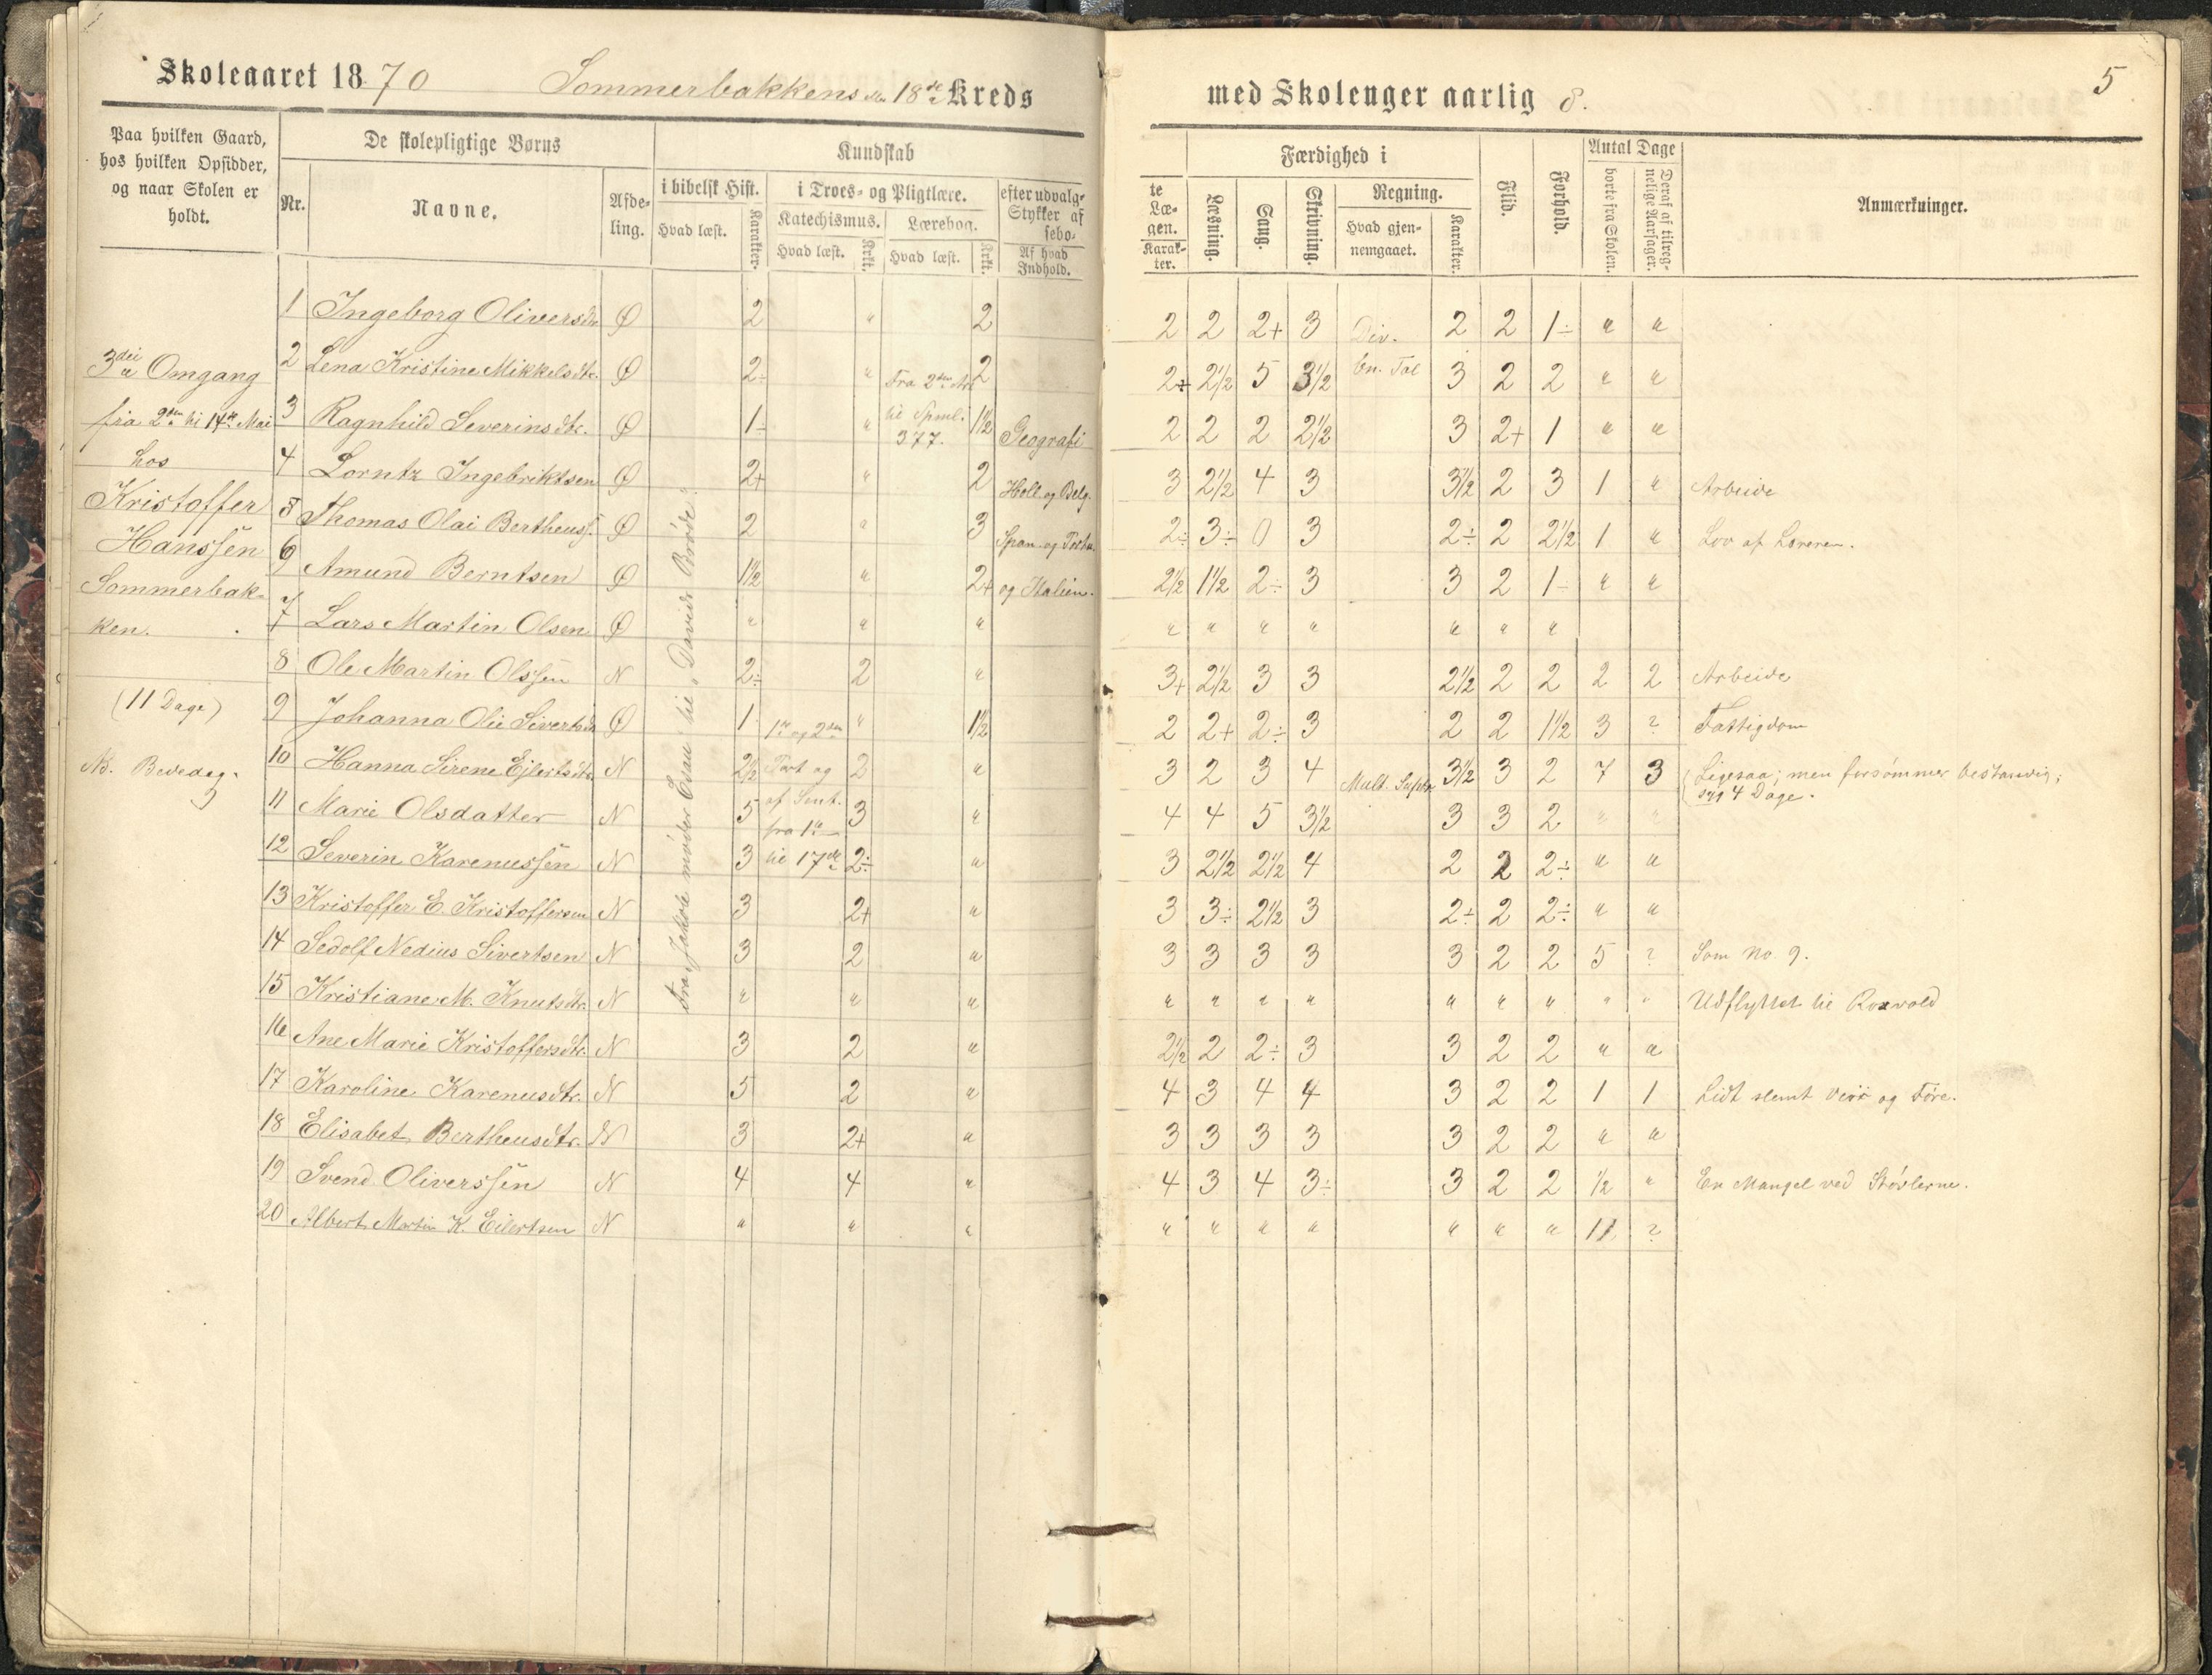 Skoleaaret 1870 Sommerbakkens 18de Kreds
Paa hvilken Gaard, hos hvilken Opsidder, og naar Skolen er holdt.
De skolepligtige Børns
Nr.
Navne.
Afdeling.
Kundskab
i bibelsk Hist.
Hvad læst.
Karakter.
i Troes- og Pligtlære.
Katechismus.
Hvad læst.
Krkt.
Lærebog.
Hvad læst.
Krkt.
efter udvalg-
Stykker af
sebo-
Af hvad Indhold.
3die Omgang
fra 2den til 14de Mai
hos
Kristoffer
Hanssen
Sommerbak-
ken.
(11 Dage)
NB. Bededag.
Fra „Jakob møder Esau" til „Davids Brøde".
Fra 2den Art.
til Spml.
377.
1ste og 2den
Part og
af Sent.
fra 1ste
til 17de
Geografi
Holl. og Belg.
Span. og Portu.
og Italien.
1 Ingeborg Oliversdtr. Ø 2 " 2
2 Lena Kristine Mikkelsdtr. Ø 2÷ " 2
3 Ragnhild Severinsdtr. Ø 1÷ " 1½
4 Lorntz Ingebriktsen Ø 2+ " 2
5 Thomas Olai Bertheuss. Ø 2 " 3
6 Amund Berntsen Ø 1½ " 2+
7 Lars Martin Olsen Ø " " "
8 Ole Martin Olssen N 2÷ 2 "
9 Johanna Olie Sivertsdtr Ø 1 " 1½
10 Hanna Sirene Ejlertsdtr. N 2½ 2 "
11 Marie Olsdatter N 5 3 "
12 Severin Karenussen N 3 2÷ "
13 Kristoffer E. Kristoffersen N 3 2+ "
14 Sedolf Nedius Sivertsen N 3 2 "
15 Kristiane M. Knutsdtr. N " " "
16 Ane Marie Kristoffersdtr. N 3 2 "
17 Karoline Karenusdtr. N 5 2 "
18 Elisabet Bertheusdtr. N 3 2+ "
19 Svend Oliverssen N 4 4 "
20 Albert Martin K. Eilertsen N " " "
med Skolenger aarlig 8.
5
te
Læ-
gen.
Karak-
ter.
Færdighed i
Læsning.
Sang.
Skrivning.
Regning.
Hvad gjen-
nemgaaet.
Karakter.
Flid.
Forhold.
Antal Dage
borte fra Skolen.
Deraf af tilreg-
nelige Aarsager.
Anmærkninger.
2 2 2+ 3 Div. 2 2 1÷ " "
2÷ 2½ 5 3½ en. Tal 3 2 2 " "
2 2 2 2½ 3 2+ 1 " "
3 2½ 4 3 3½ 2 3 1 " Arbeide
2÷ 3÷ 0 3 2÷ 2 2½ 1 " Lov af Læreren.
2½ 1½ 2÷ 3 3 2 1÷ " "
" " " " " " "
3+ 2½ 3 3 2½ 2 2 2 2 Arbeide
2 2+ 2÷ 3 2 2 1½ 3 ? Fattigdom
3 2 3 4 Mult. Subtr 3½ 3 2 7 3 Ligesaa; men forsømmer bestandig;
syg 4 Dage.
4 4 5 3½ 3 3 2 " "
3 2½ 2½ 4 2 2 2÷ " "
3 3÷ 2½ 3 2÷ 2 2÷ " "
3 3 3 3 3 2 2 5 ? Som No. 9.
" " " " " " " " " Udflyttet til Roxvold
2½ 2 2÷ 3 3 2 2 " "
4 3 4 4 3 2 2 1 1 Lidt slemt Veir og Føre.
3 3 3 3 3 2 2 " "
4 3 4 3÷ 3 2 2 ½ " En Mangel ved Støvlerne.
" " " " " " " 11 ?